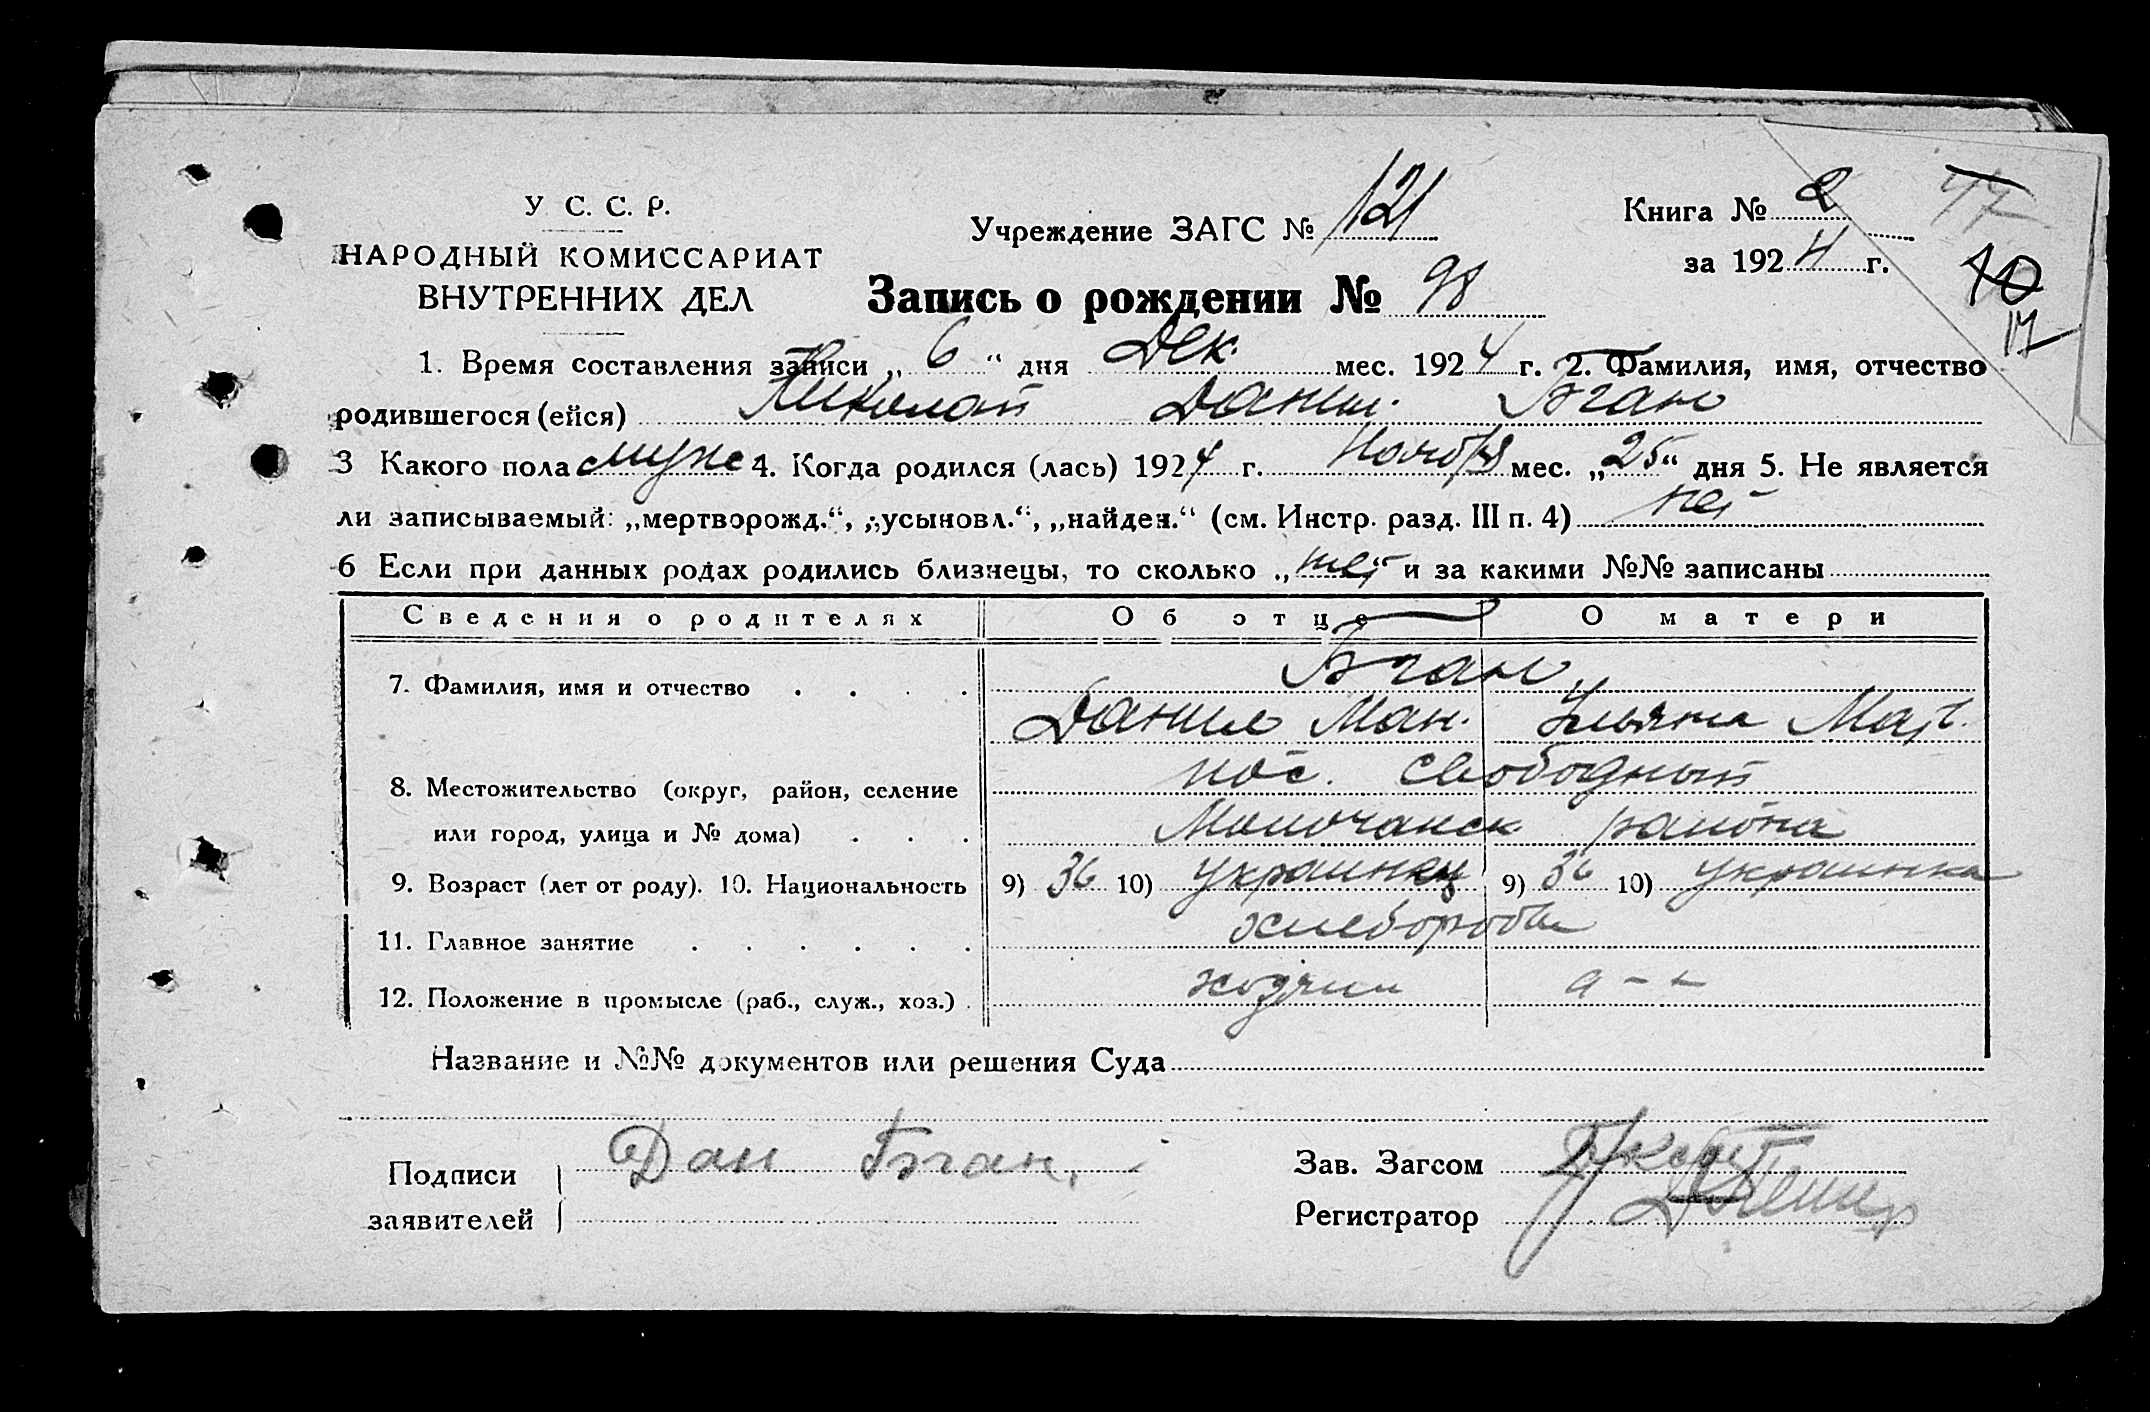 У. С. С. Р.
НАРОДНЫЙ КОМИССАРИАТ
ВНУТРЕННИХ ДЕЛ
Учреждение ЗАГС № 121
Книга № 2
за 1924 г.
47
10
17
Запись о рождении № 98
1. Время составления записи „6“ дня Дек. мес. 1924 г. 2. Фамилия, имя, отчество
родившегося (ейся) Николай Данил. Бган
3 Какого пола муже 4. Когда родился (лась) 1924 г. Ноября мес. „25“ дня 5. Не является
ли записываемый: „мертворожд.“, „усыновл.“, „найден.“ (см. Инстр. разд. III п. 4) нет
6 Если при данных родах родились близнецы, то сколько „нет“ и за какими №№ записаны
Сведения о родителях Об отце О матери
7. Фамилия, имя и отчество . . . . Бган
Данил Ман. Ульяна
8. Местожительство (округ, район, селение пос. Свободный
или город, улица и № дома) . . . Молочанск района
9. Возраст (лет от роду). 10. Национальность 9) 36 10) украинец 9) 36 10) украинка
11. Главное занятие . . . . . . хлебороб
12. Положение в промысле (раб., служ., хоз.) .
Название и №№ документов или решения Суда
Подписи
заявителей
Дан Бган.
Зав. Загсом
Регистратор